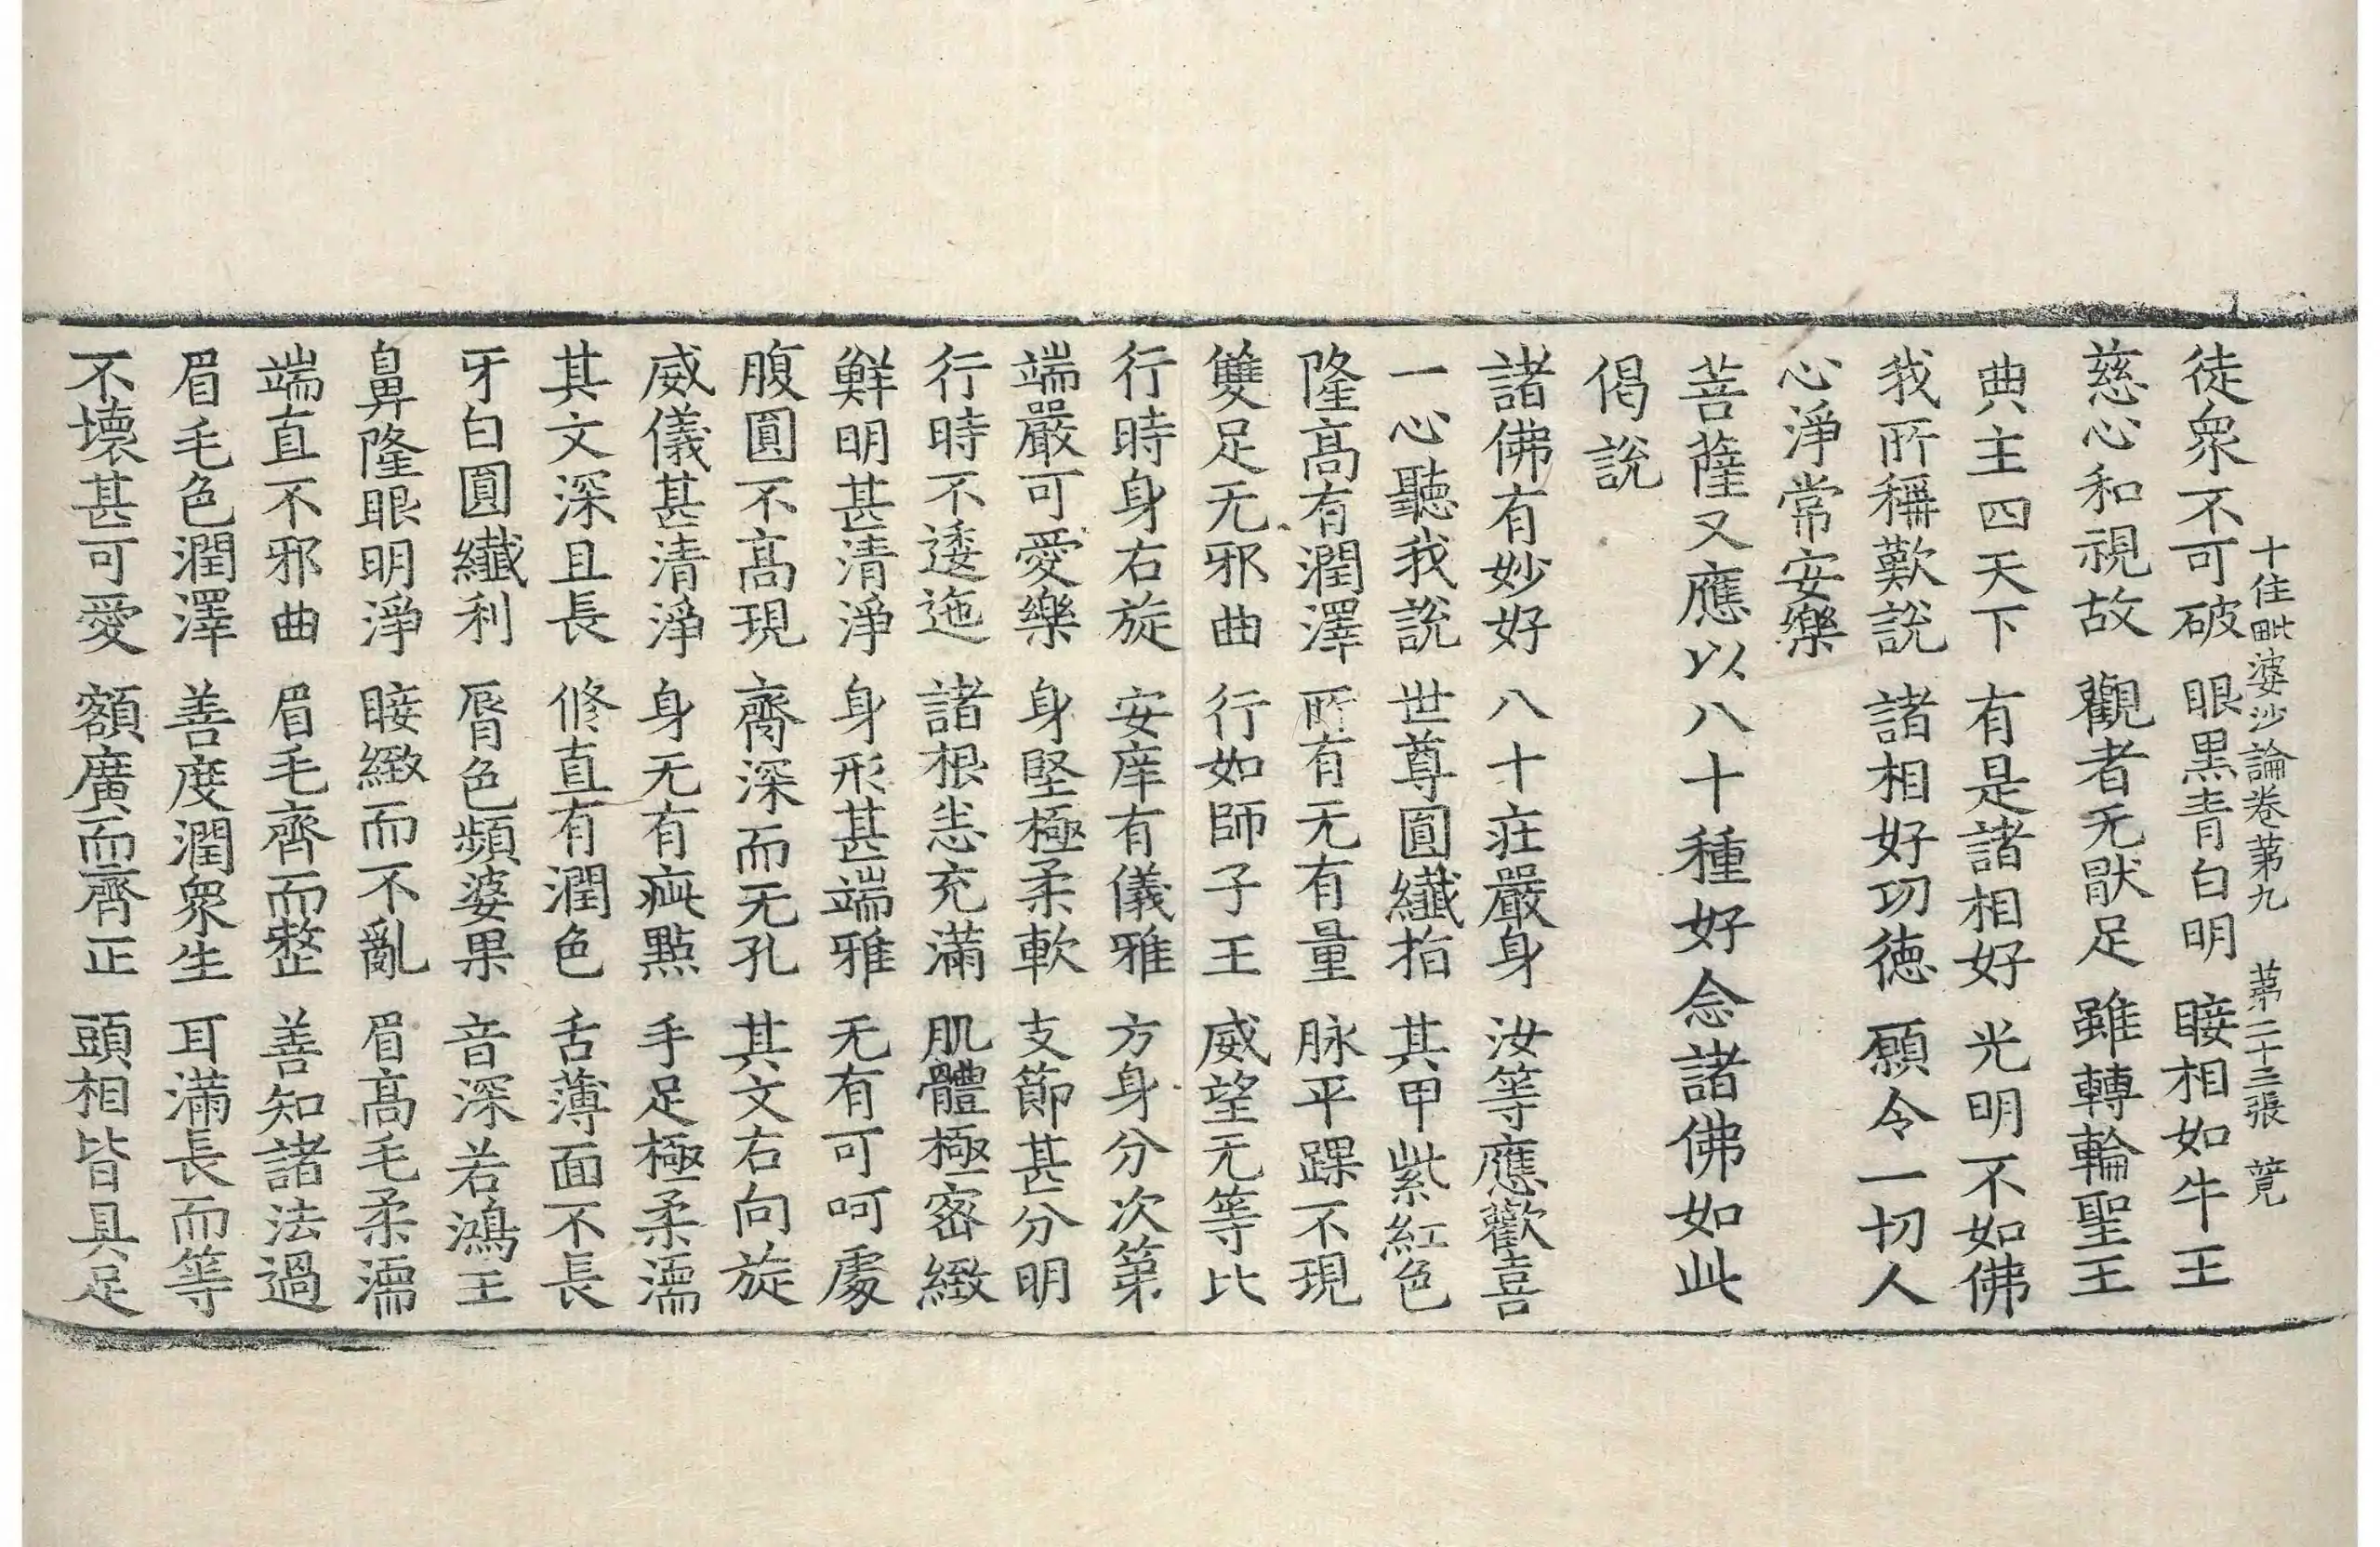 十住毗婆沙論卷第九　第二十三張　萈
徒衆不可破　眼黑青白明　睫相如牛王
慈心和視故　觀者无猒足　雖轉輪聖王
典主四天下　有是諸相好　光明不如佛
我所稱歎說　諸相好功德　願令一切人
心淨常安樂
菩薩又應以八十種好念諸佛如此
偈說
諸佛有妙好　八十莊嚴身　汝等應歡喜
一心聽我說　世尊圓纖指　其甲紫紅色
隆高有潤澤　所有无有量　脉平踝不現
雙足无邪曲　行如師子王　威望无等比
行時身右旋　安庠有儀雅　方身分次第
端嚴可愛樂　身堅極柔軟　支節甚分明
行時不逶迤　諸根悉充滿　肌體極密緻
鮮明甚清淨　身形甚端雅　无有可呵處
腹圓不高現　齊深而无孔　其文右向旋
威儀甚清淨　身无有疵點　手足極柔濡
其文深且長　修直有潤色　舌薄面不長
牙白圓纖利　脣色頻婆果　音深若鴻王
鼻隆眼明淨　睫緻而不亂　眉高毛柔濡
端直不邪曲　眉毛齊而整　善知諸法過
眉毛色潤澤　善度潤衆生　耳滿長而等
不壞甚可愛　額廣而齊正　頭相皆具足